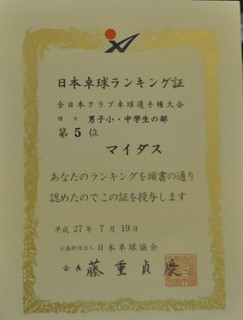 日本卓球ランキング証
全日本クラブ卓球選手権大会
種目 男子小・中学生の部
第5位
マイダス
あなたのランキングを頭書の通り
認めたのでこの証を授与します
平成27年7月19日
公益財団法人 日本卓球協会
会長 藤重貞慶